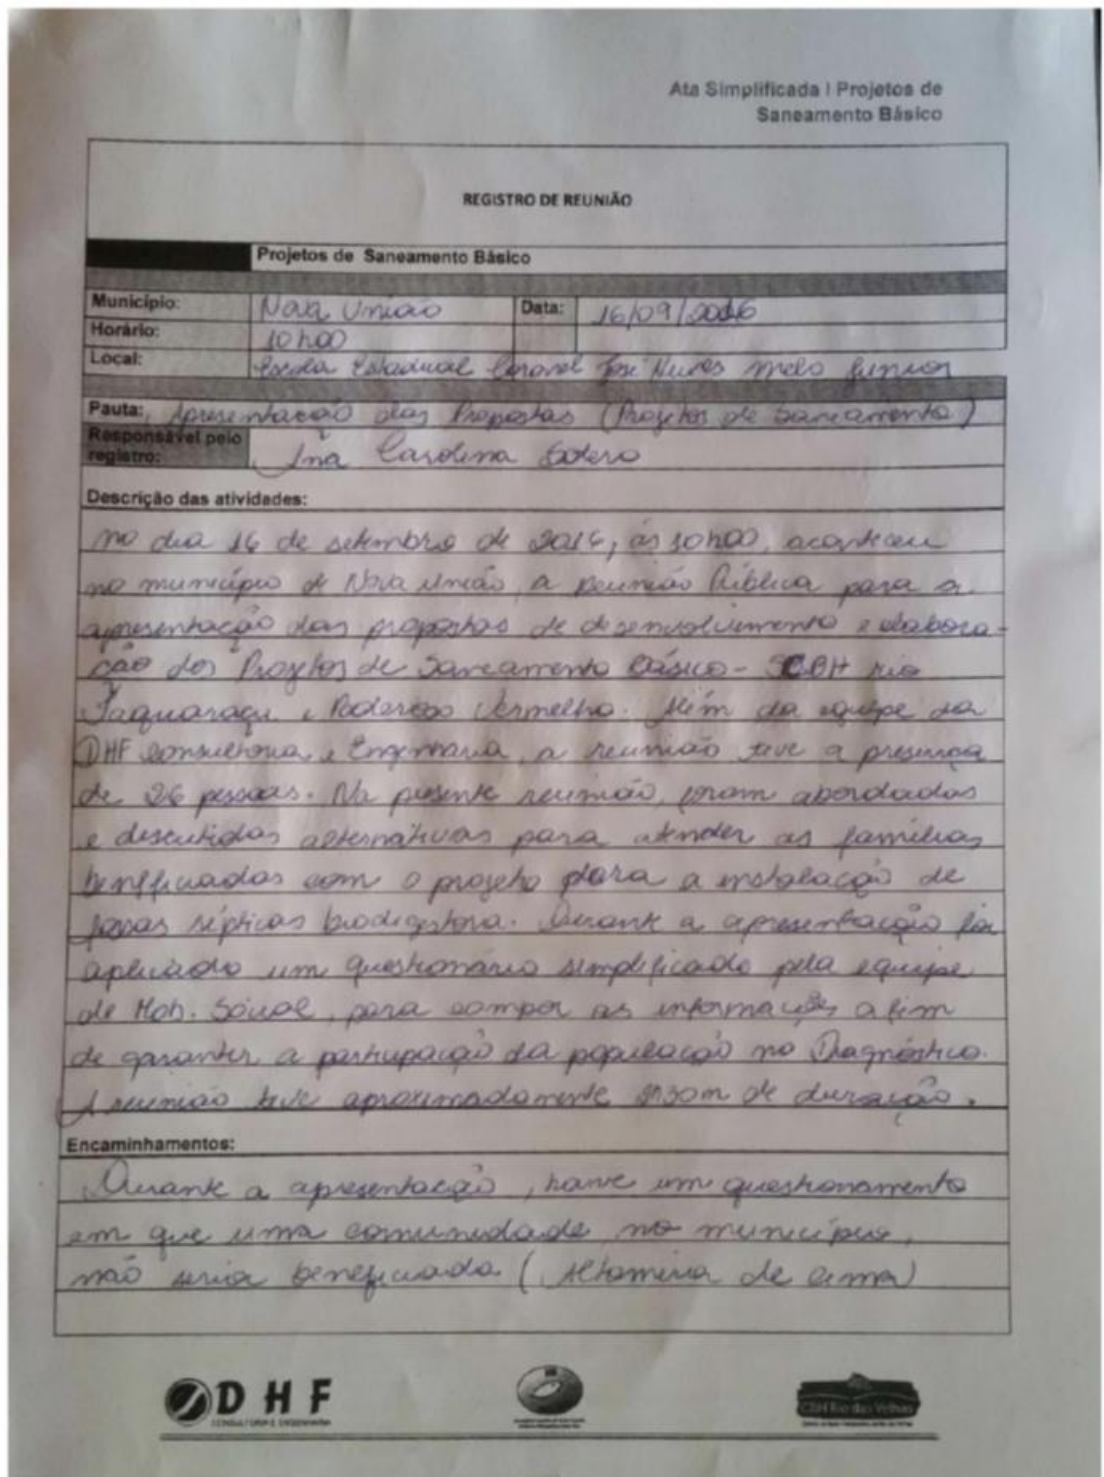 Ata Simplificada | Projetos de
Saneamento Básico
REGISTRO DE REUNIÃO
Projetos de Saneamento Básico
Município: Nova União Data: 16/09/2016
Horário: 10h00
Local: Escola Estadual Coronel José Nunes Melo Junior
Pauta: Apresentação das Propostas (Projetos de Saneamento)
Responsável pelo
registro: Ana Carolina Sotero
Descrição das atividades:
no dia 16 de setembro de 2016, às 10h00, aconteceu
no município de Nova União, a Reunião Pública para a
apresentação das propostas de desenvolvimento e elabora-
ção dos Projetos de Saneamento Básico - SCBH rio
Taquaraçu e Poderoso Vermelho. Além da equipe da
DHF Consultoria e Engenharia, a reunião teve a presença
de 26 pessoas. Na presente reunião, foram abordadas
e discutidas alternativas para atender as famílias
beneficiadas com o projeto para a instalação de
fossas sépticas biodigestora. Durante a apresentação foi
aplicado um questionário simplificado pela equipe
de Mob. Social, para compor as informações a fim
de garantir a participação da população no Diagnóstico.
A reunião teve aproximadamente de duração.
Encaminhamentos:
Durante a apresentação, houve um questionamento
em que uma comunidade no município
não seria beneficiada (Altamira de cima)
DHF
CONSULTORIA E ENGENHARIA
CBH Rio das Velhas